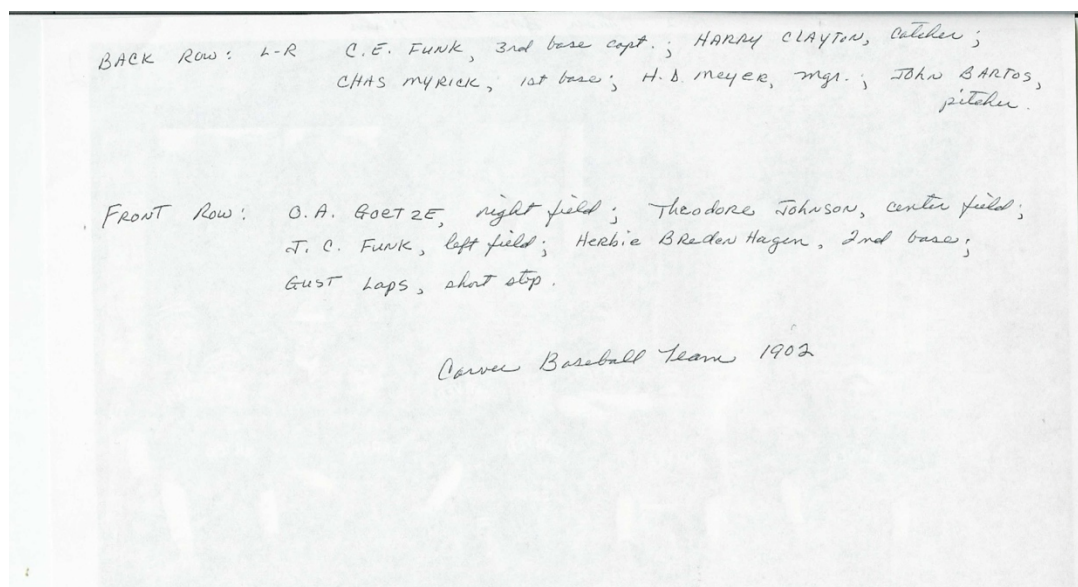 BACK ROW: L-R C.E. FUNK, 3rd base capt.; HARRY CLAYTON, catcher;
CHAS MYRICK, 1st base; H.D. MEYER, mgr.; JOHN BARTOS,
pitcher.
FRONT ROW: O.A. GOETZE, right field; Theodore JOHNSON, center field;
J.C. FUNK, left field; Herbie BredenHagen, 2nd base;
GUST LAPS, short stop.
Carver Baseball Team 1902